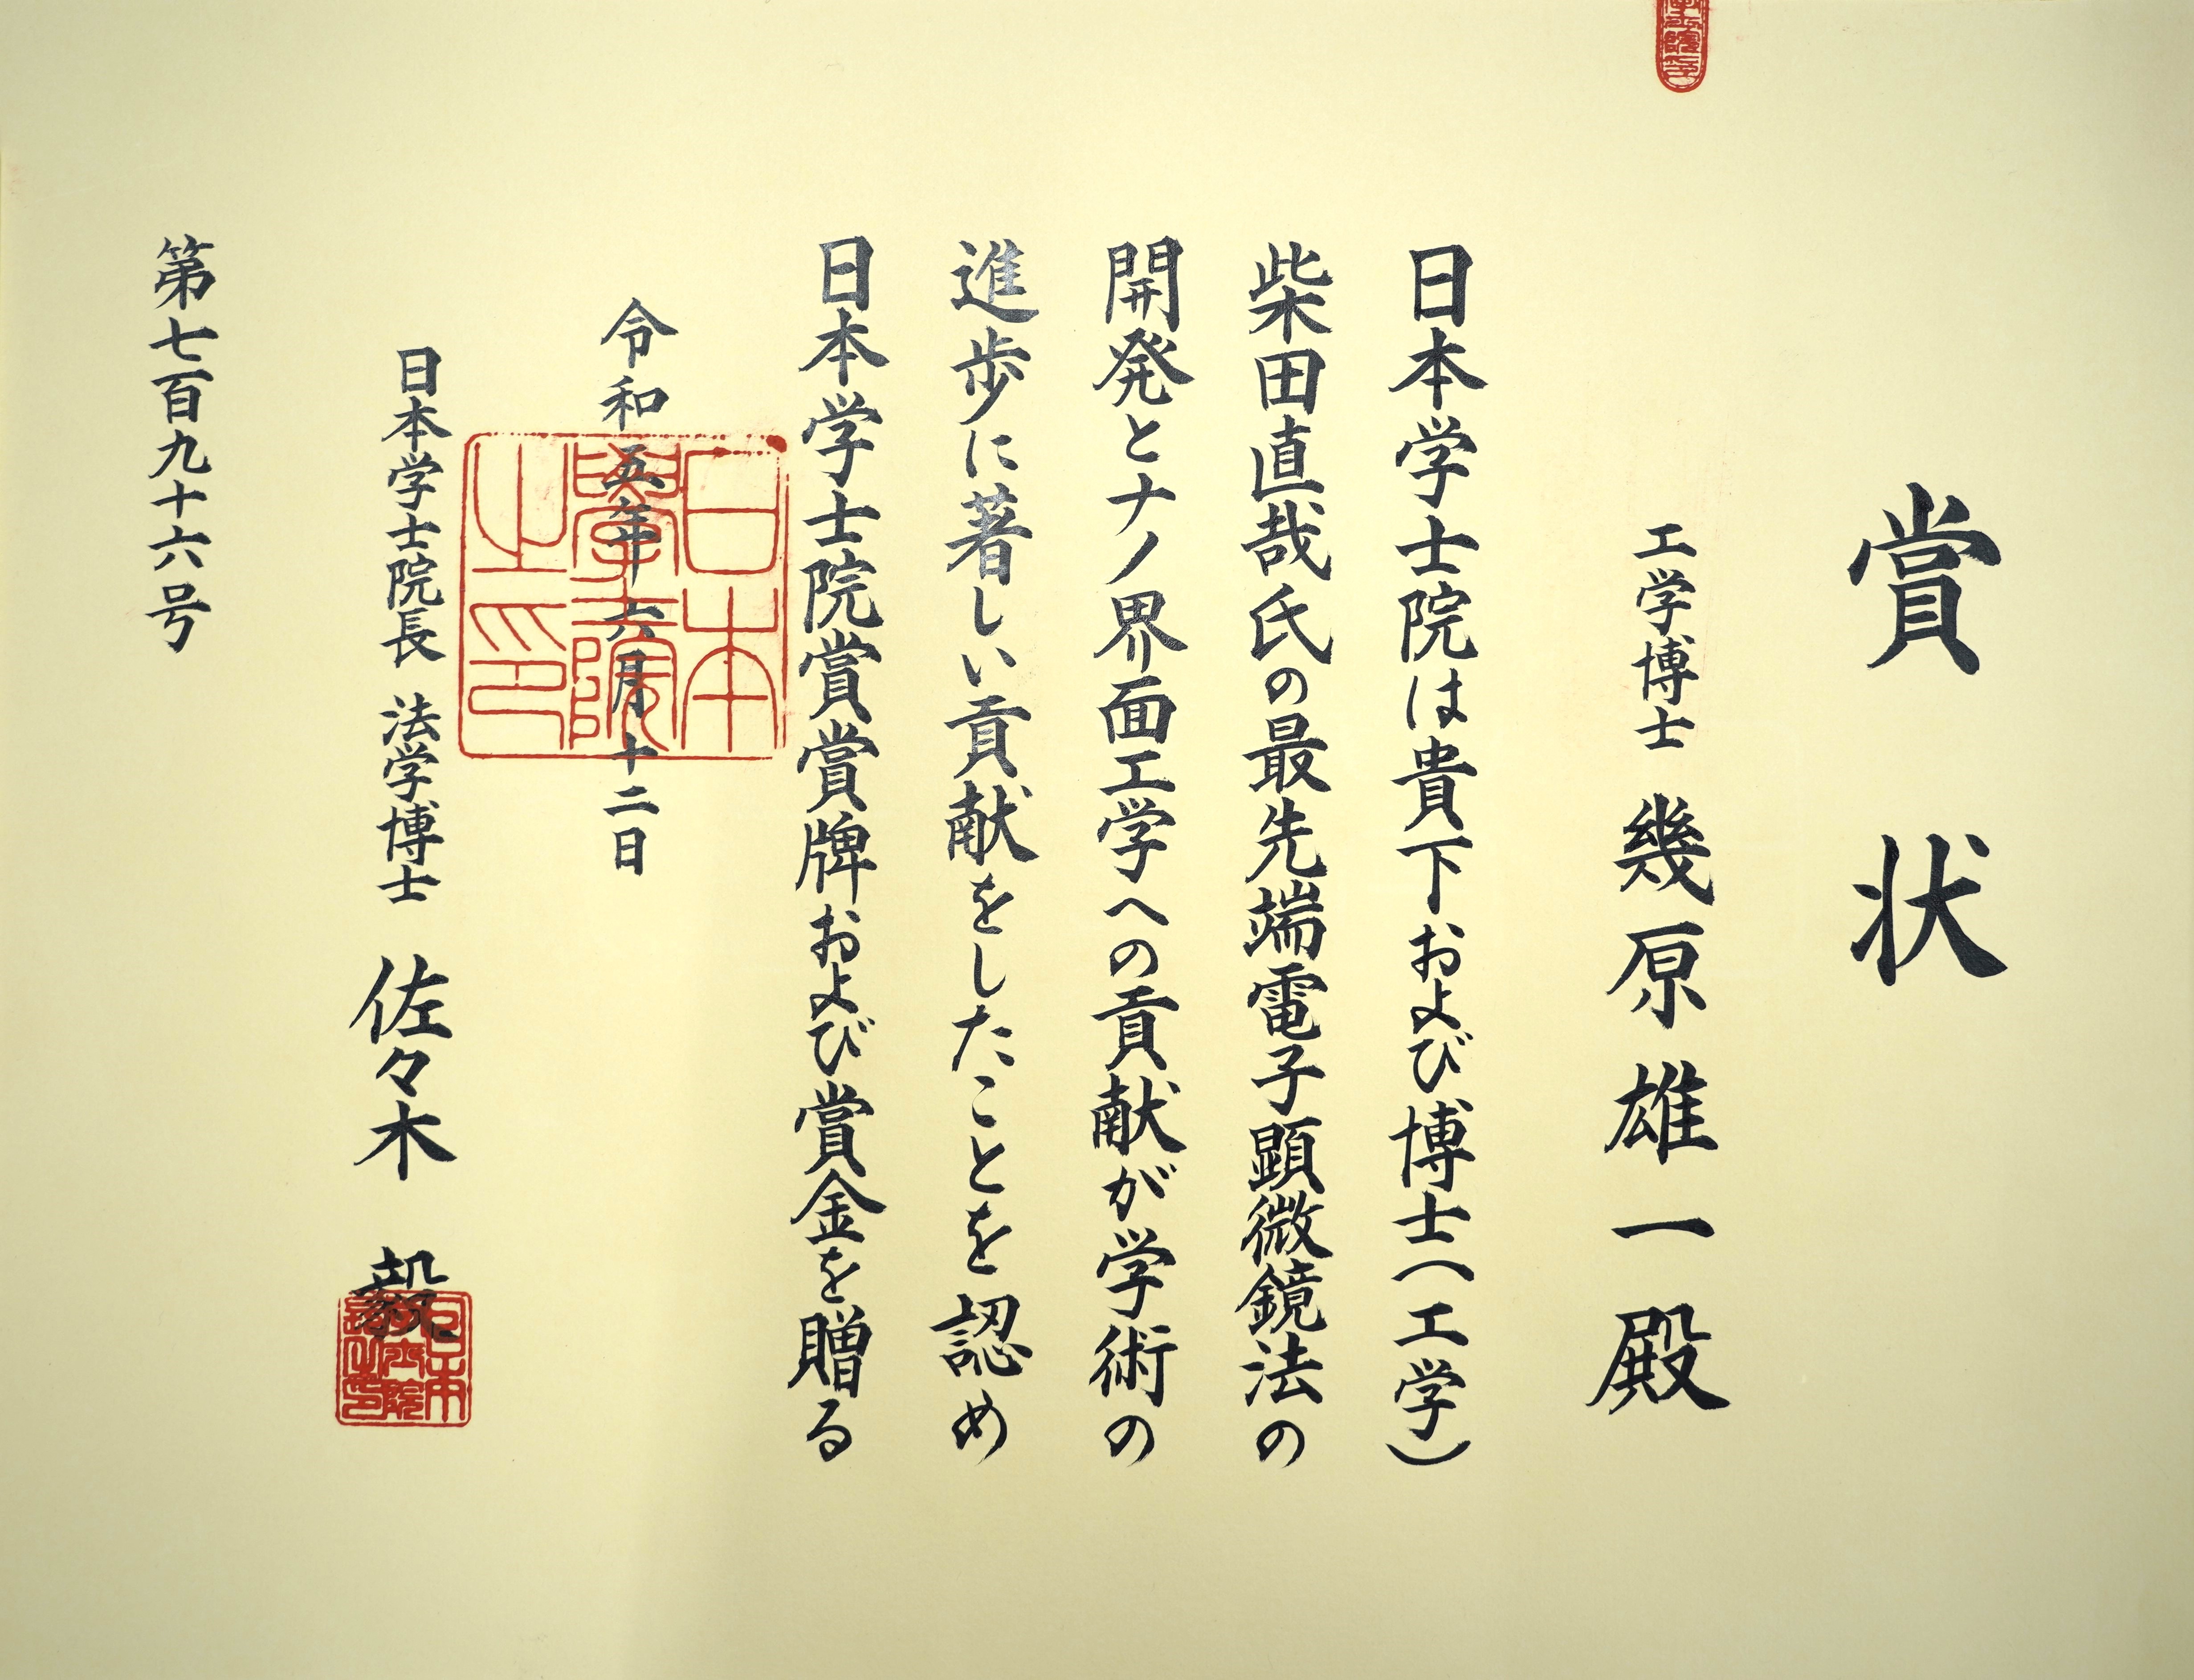 賞状
工学博士 幾原雄一殿
日本学士院は貴下および博士(工学)
柴田直哉氏の最先端電子顕微鏡法の
開発とナノ界面工学への貢献が学術の
進歩に著しい貢献をしたことを認め
日本学士院賞賞牌および賞金を贈る
令和五年六月十二日
日本学士院長 法学博士 佐々木 毅
第七百九十六号
日本
學士院
之印